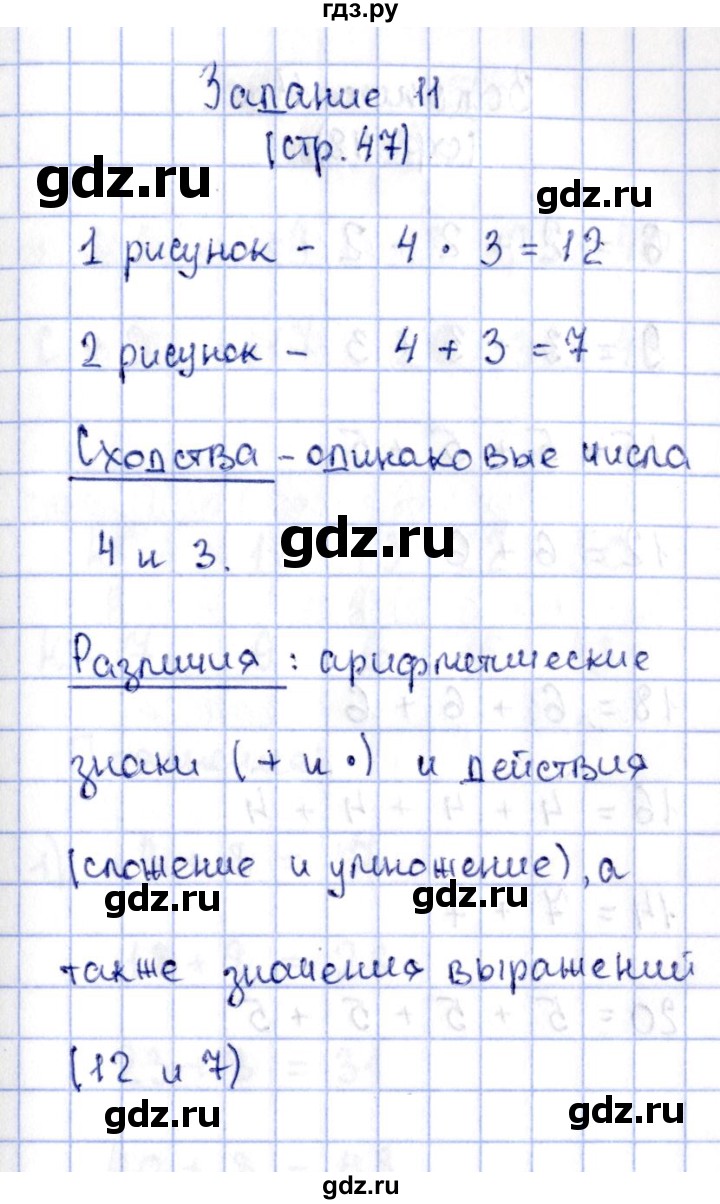 гдз.ру
Задание 11
(стр. 47)
gdz.ru
gdz.ru
1 рисунок - 4 · 3 = 12
2 рисунок - 4 + 3 = 7
Сходства - одинаковые числа
4 и 3.
gdz.ru
Различия : арифметические
знаки (+ и ·) и действия
(сложение и умножение), а
gdz.ru
gdz.ru
также значения выражений
(12 и 7)
gdz.ru
gdz.ru
gdz.ru